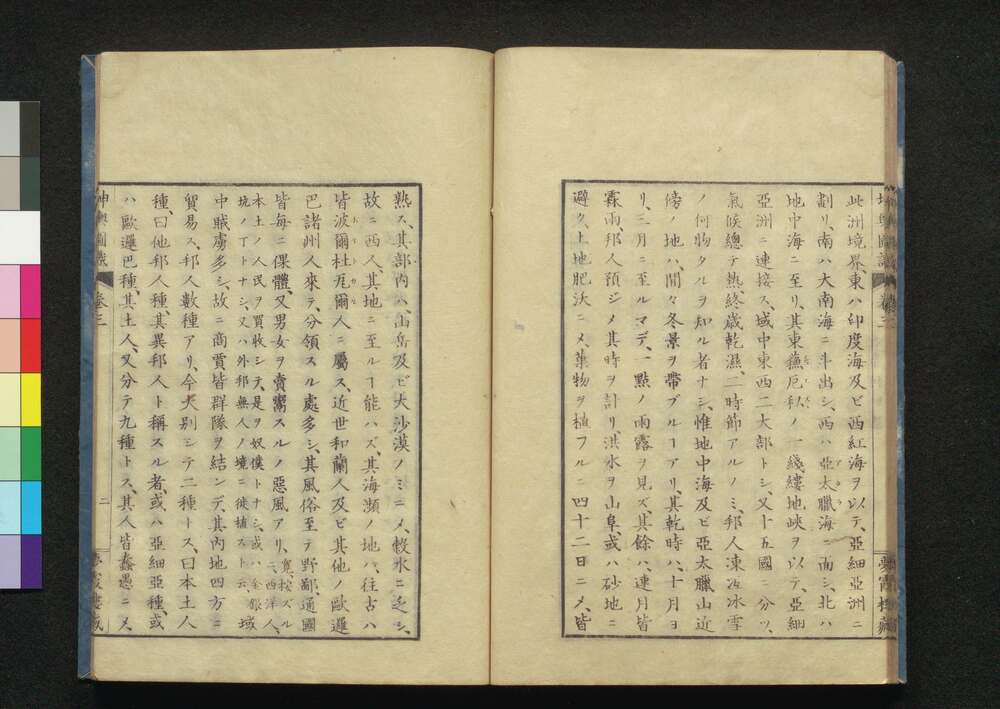 此洲境界東ハ印度海及ビ西紅海ヲ以テ、亞細亞洲ニ
劃リ、南ハ大南海ニ斗出シ、西ハ亞太臘海ニ面シ、北ハ
地中海ニ至リ、其東蘓厄私ノ一綫縷地峽ヲ以テ、亞細
亞洲ニ連接ス、域中東西二大部トシ、又十五國ニ分ツ、
氣候總テ熱、終歳乾濕、二時節アルノミ、邦人凍冱冰雪
ノ何物タルヲ知ル者ナシ、惟地中海及ビ亞太臘山近
傍ノ地ハ、間々冬景ヲ帶ブルヿアリ、其乾時ハ、十月ヨ
リ、三月ニ至ルマデ、一點ノ雨露ヲ見ズ、其餘ハ、連月皆
霖雨、邦人預ジメ其時ヲ計リ、洪水ヲ山阜、或ハ砂地ニ
避ク、土地肥沃ニメ、藥物ヲ植フルニ四十二日ニメ、皆
坤輿圖識 卷三
夢霞樓藏
熟ス、其部内ハ、山岳及ビ大沙漠ノミニメ、穀水ニ乏シ、
故ニ西人、其地ニ至ルヿ能ハズ、其海瀕ノ地ハ、往古ハ
皆波爾杜瓦爾人ニ屬ス、近世和蘭人及ビ其他ノ歐邏
巴諸州人來テ、分領スル處多シ、其風俗至テ野鄙、通國
皆毎ニ倮體、又男女ヲ賣鬻スルノ惡風アリ、寛按ズルニ、西洋人、
本土ノ人民ヲ買收シテ、是ヲ奴僕トナシ、或ハ金銀
坑ノ丁トナシ、又ハ外邦無人ノ境ニ徙植スト云、域
中賊虜多シ、故ニ商賈皆群隊ヲ結ンデ、其内地四方ニ
貿易ス、邦人數種アリ、今大別シテ二種トス、曰本土人
種、曰他邦人種、其異邦人ト稱スル者、或ハ亞細亞種、或
ハ歐邏巴種、其土人、又分テ九種トス、其人皆蠢愚ニメ、
坤輿圖識 卷三 二 夢霞樓藏